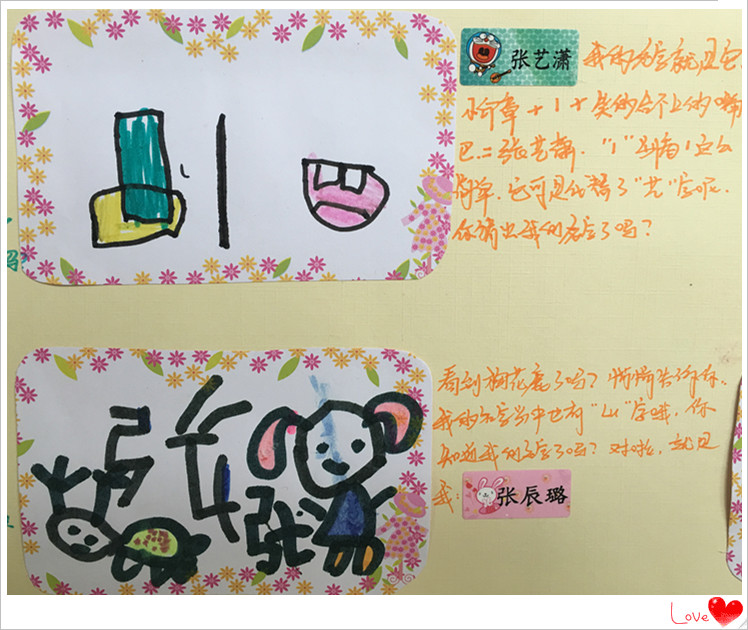 张艺潇 我的名字就是
小印章+1+笑的合不上的嘴
巴=张艺潇.“1”别看1这么
简单,它可是代替了“艺”字呢.
你猜出我的名字了吗?
看到梅花鹿了吗?悄悄告诉你,
我的名字当中也有“Lu”字哦,你
知道我的名字了吗?对啦,就是
我:张辰璐
张
Love